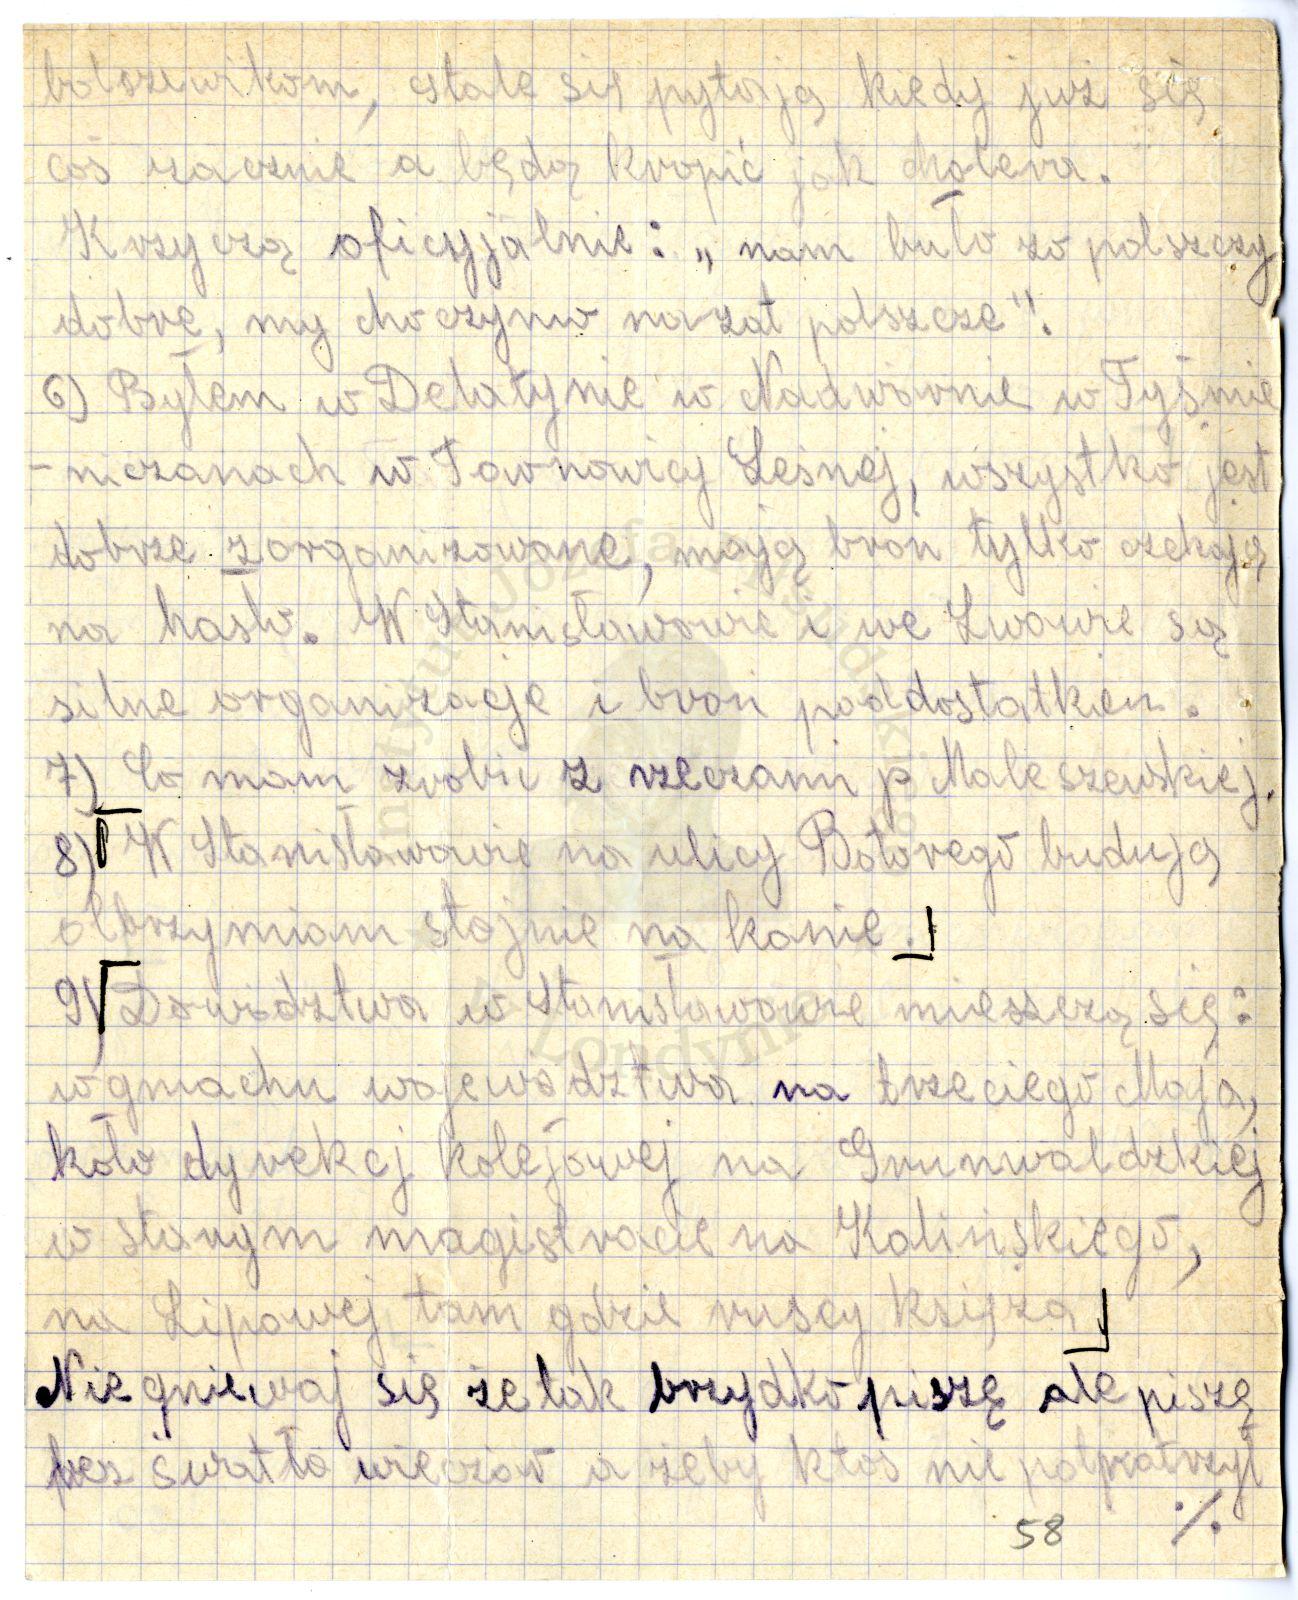 bolszewikom, stale się pytają kiedy już się
coś zacznie a będą kropić jak cholera.
Krzyczą oficyjalnie: „nam buło za polszczy
dobre, my choczymo nazat polszcze".
6) Byłem w Delatynie w Nadwórnie w Tyśmie
-niczanach w Tarnowicy Leśnej, wszystko jest
dobrze zorganizowane, mają broń tylko czekają
na hasło. W Stanisławowie i we Lwowie są
silne organizacje i broń poddostatkiem.
7) Co mam zrobić z rzeczami p Maleszewskiej.
8) W Stanisławowie na ulicy Batorego budują
olbrzymiam stajnie na konie.
9) Dowództwa w Stanisławowie mieszczą się:
w gmachu województwa na trzeciego Maja,
koło dyrekcj kolejowej na Grunwaldzkiej
w starym magistracie na Kalińskiego,
na Lipowej tam gdzie ruscy księża
Nie gniewaj się że tak brzydko piszę ale piszę
bez światła wieczór a żeby ktoś nie
58 ./.
Instytut Józefa Piłsudskiego
w Londynie